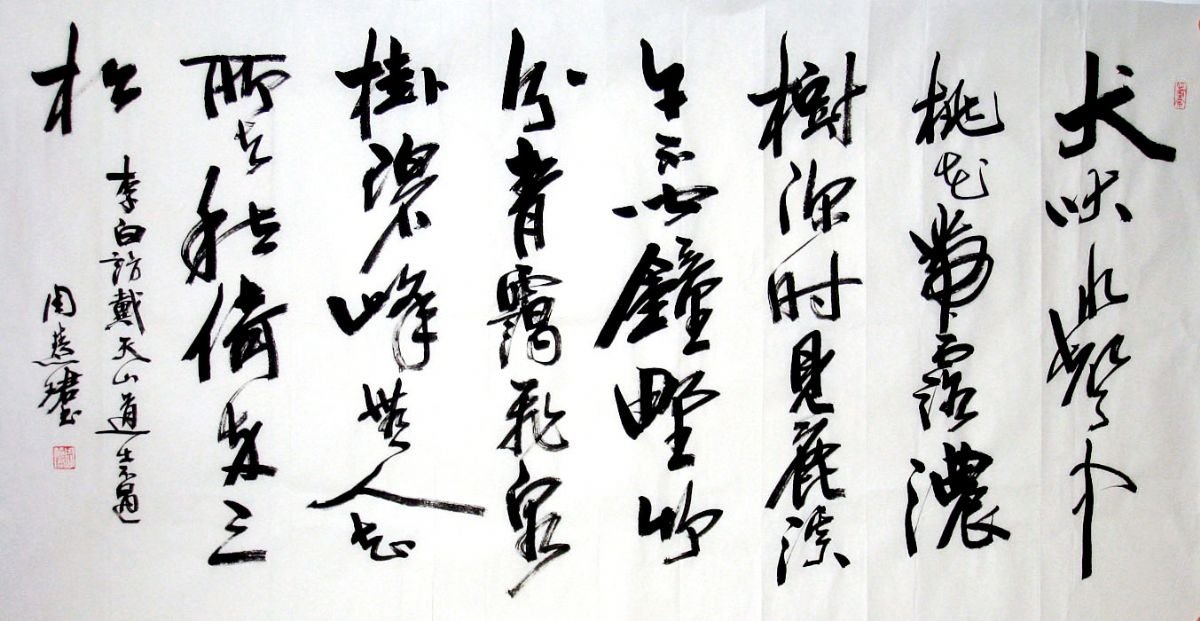 犬吠水聲中
桃花帶露濃
樹深时見鹿溪
午不闻鐘野竹
分青靄飛泉
掛碧峰無人知
所去愁倚两三
松
李白訪戴天山道士不遇
周慧珺